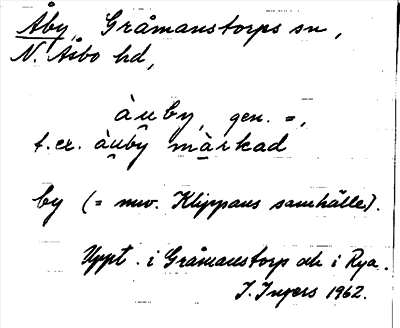 Åby, Gråmanstorps sn,
N. Åsbo hd,
àu̯by, gen. =,
t.ex. àu̯by màrkad
by (= nuv. Klippans samhälle).
Uppt. i Gråmanstorp och i Rya.
I. Ingers 1962.